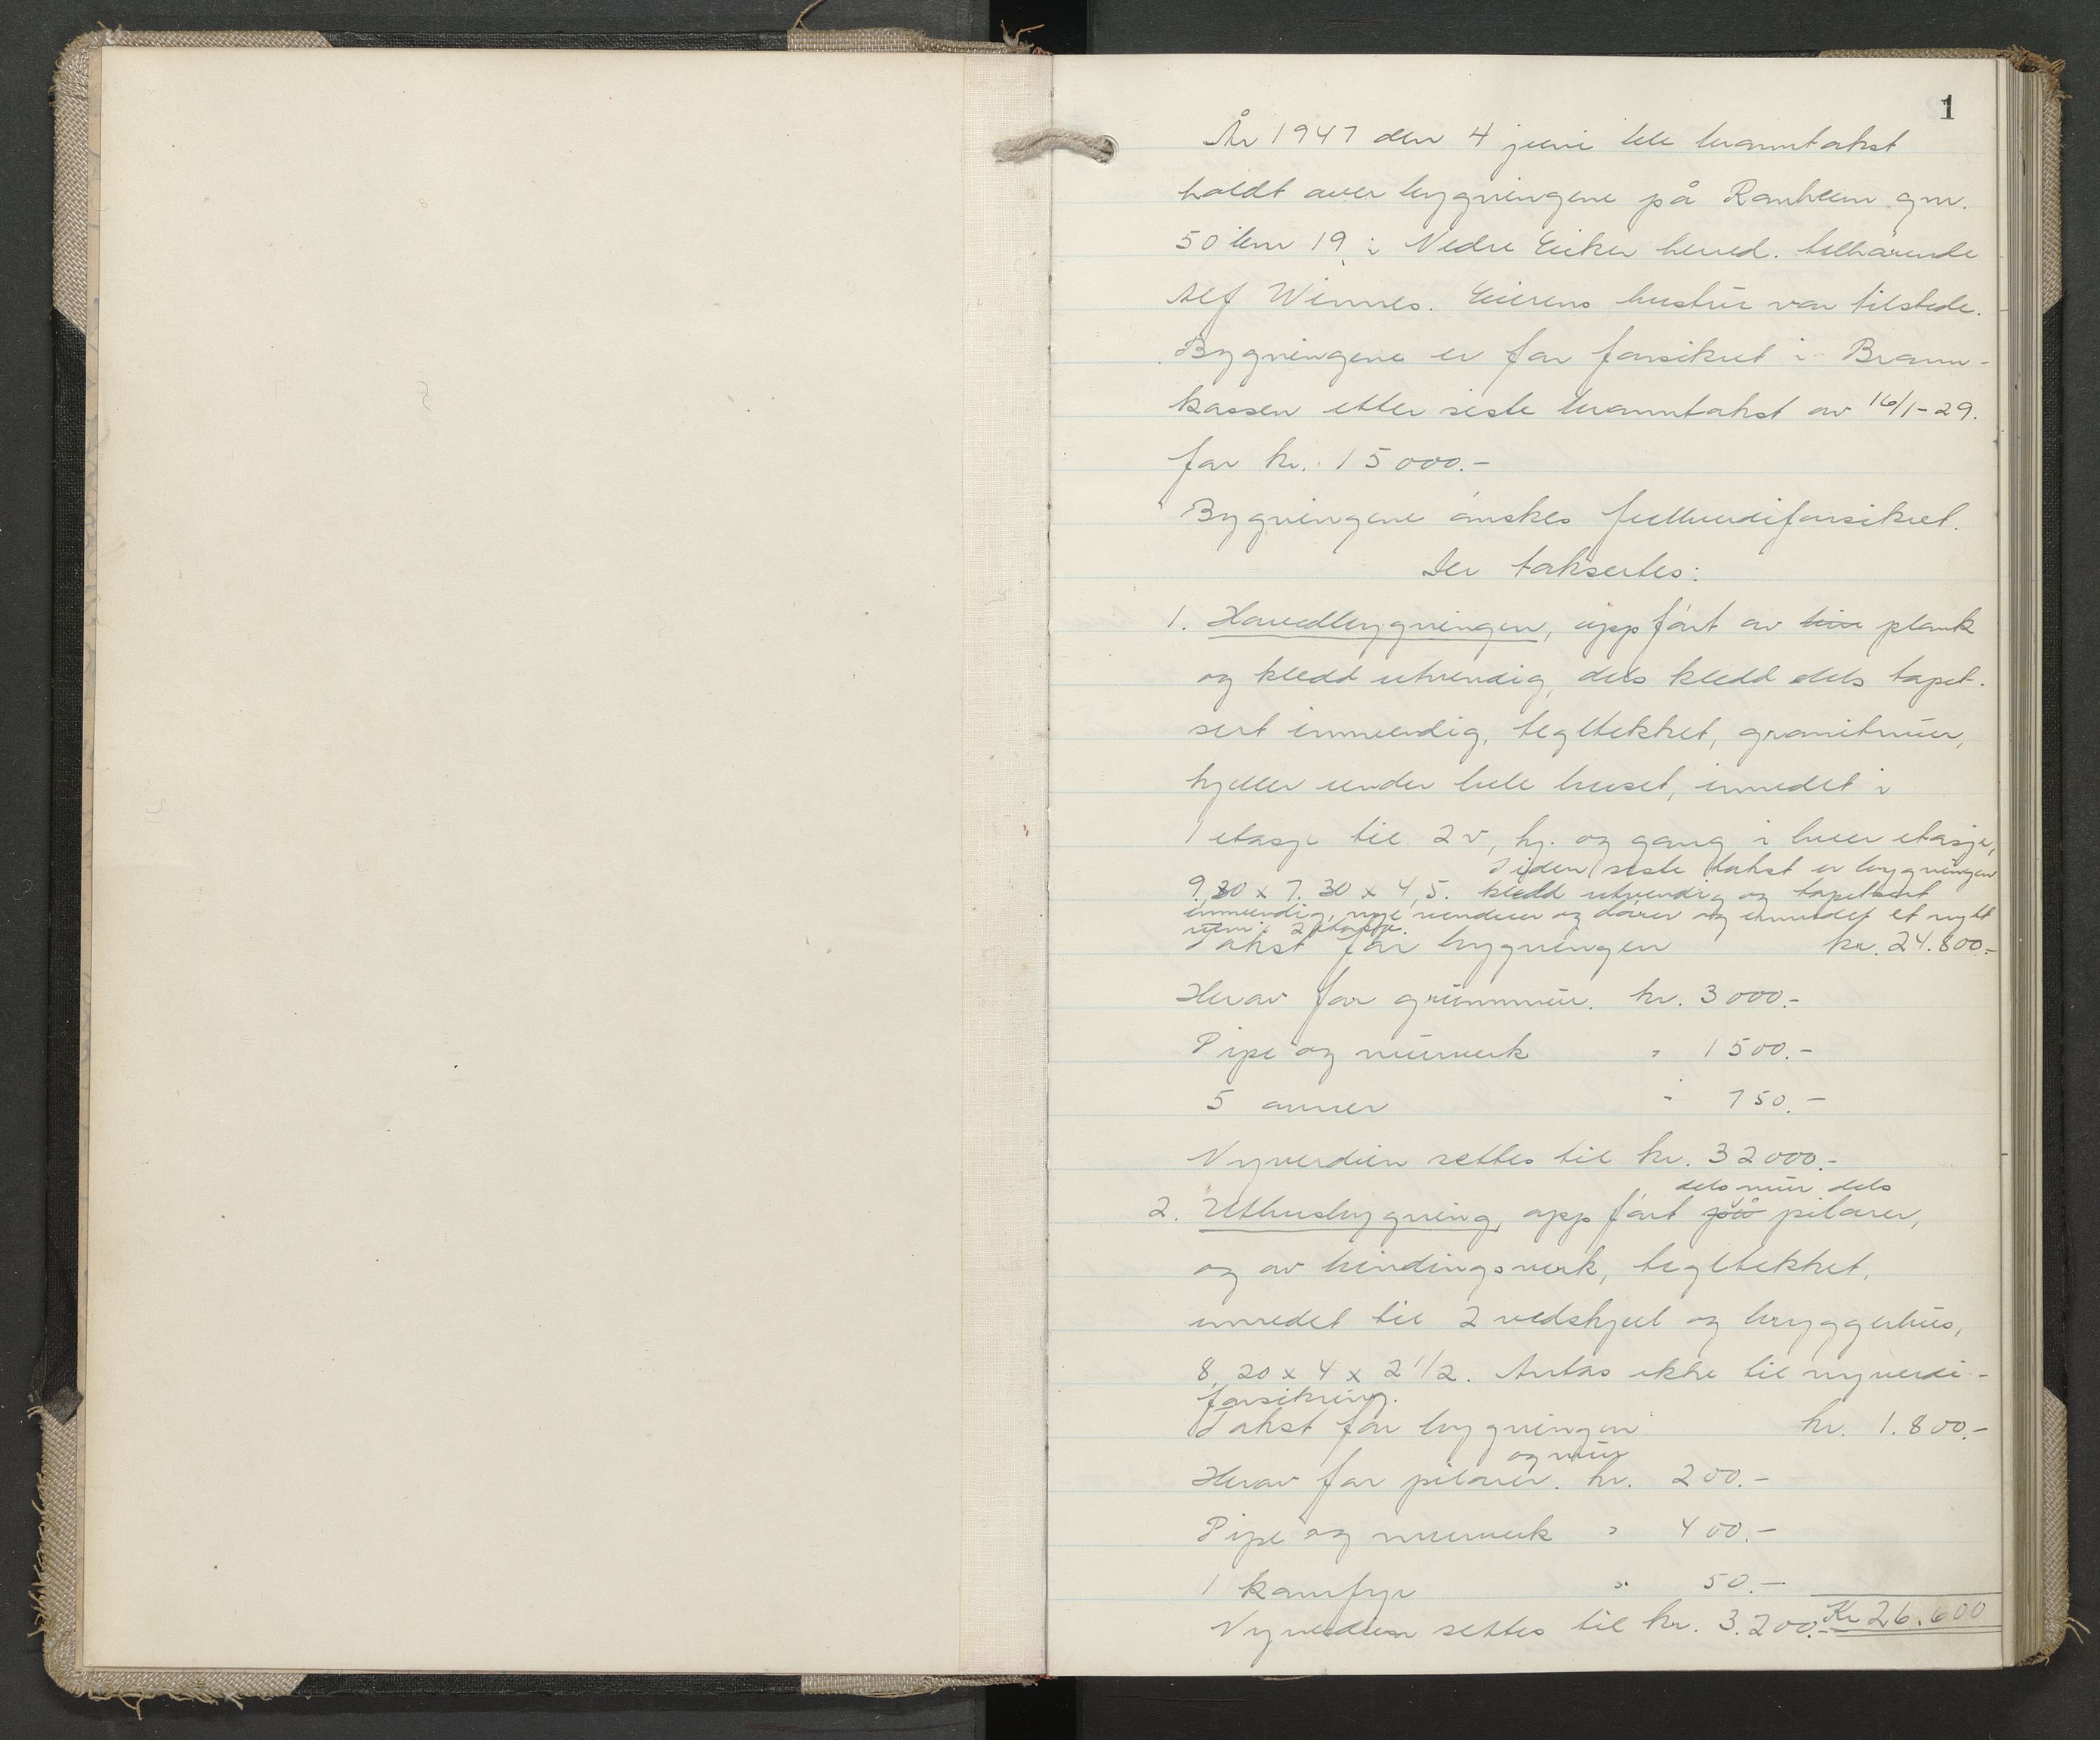 1
År 1947 den 4 juni ble branntakst
holdt over bygningene på Ranheim gnr.
50 bnr 19 i Nedre Eiker herred. tilhørende
Alf Winnes. Eierens hustru var tilstede.
Bygningene er før forsikret i Brann-
kassen etter siste branntakst av 16/1-29.
for kr. 15000.-
Bygningene ønskes fullverdiforsikret.
Der taksertes:
1. Hovedbygningen, oppført av plank
og kledd utvendig, dels kledd dels tapet-
sert innvendig, tegltekket, granitmur,
kjeller under hele huset, innredet i
1 etasje til 2 v, kj. og gang i hver etasje,
Siden siste takst er bygningen
9,30 x 7.30 x 4,5. kledd utvendig og tapetsert
innvendig, nye vinduer og dører og innredet et nytt
rum i 2 etasje.
Takst for bygningen kr. 24.800.-
Herav for grunnmur. kr. 3000.-
Pipe og murverk " 1500.-
5 ovner " 750.-
Nyverdien settes til kr. 32000.-
dels mur dels
2. Uthusbygning, oppført på pilarer,
og av bindingsverk, tegltekket,
innredet til 2 vedskjul og bryggerhus,
8,20 x 4 x 2 1/2. Antas ikke til nyverdi-
forsikring.
Takst for bygningen kr. 1.800.-
og mur
Herav for pilarer. kr. 200.-
Pipe og murverk " 400.-
1 komfyr " 50.-
Nyverdien settes til kr. 3.200.- Kr 26.600